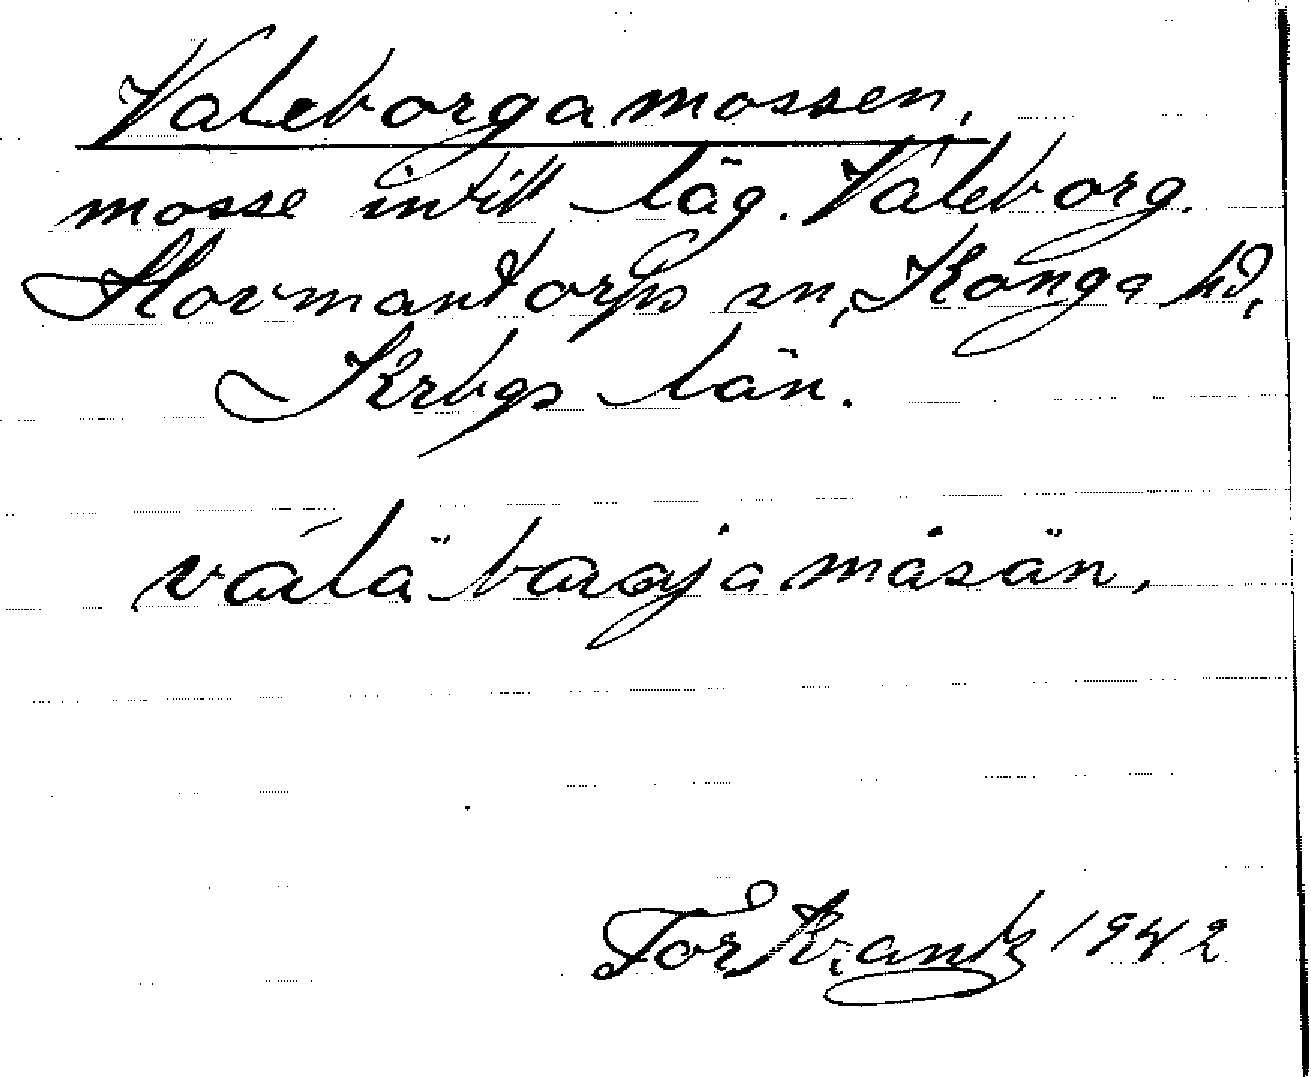 Valeborgamossen,
mosse intill läg. Valeborg.
Hovmantorps sn, Konga hd,
Krbgs län.
válä barjamåsän,
Tor Krantz 1942